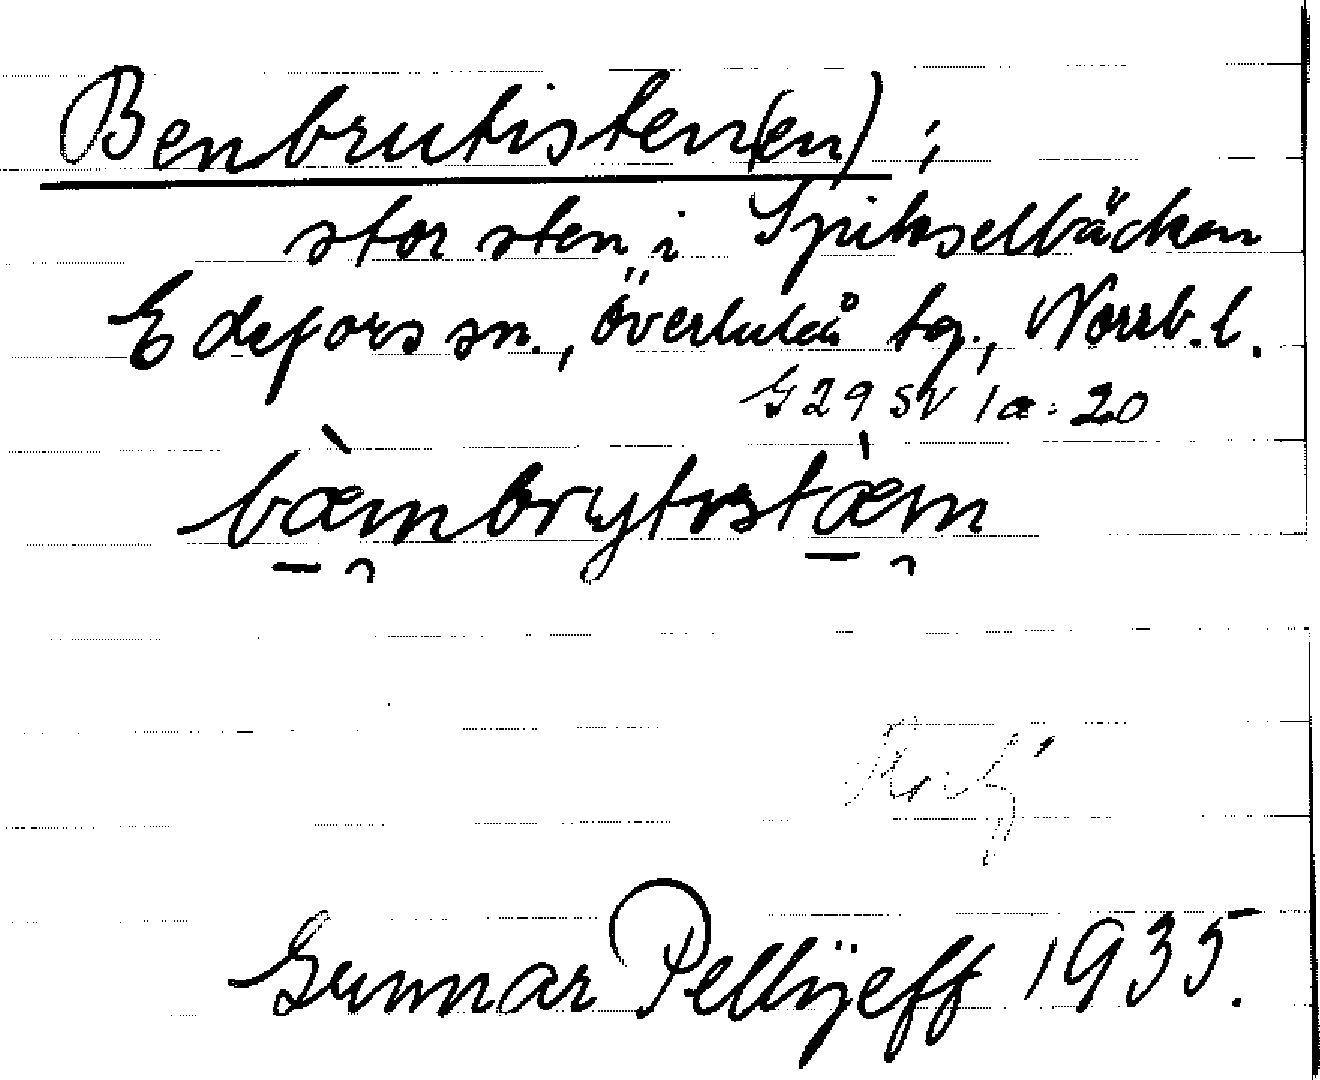 Benbrutisten(en);
stor sten i Spikselbäcken
Edefors sn., Överluleå tg., Norrb. l.
G 29 SV 1a: 20
bæ̀mbrytɩstæ̀m
Gunnar Pellijeff 1935.